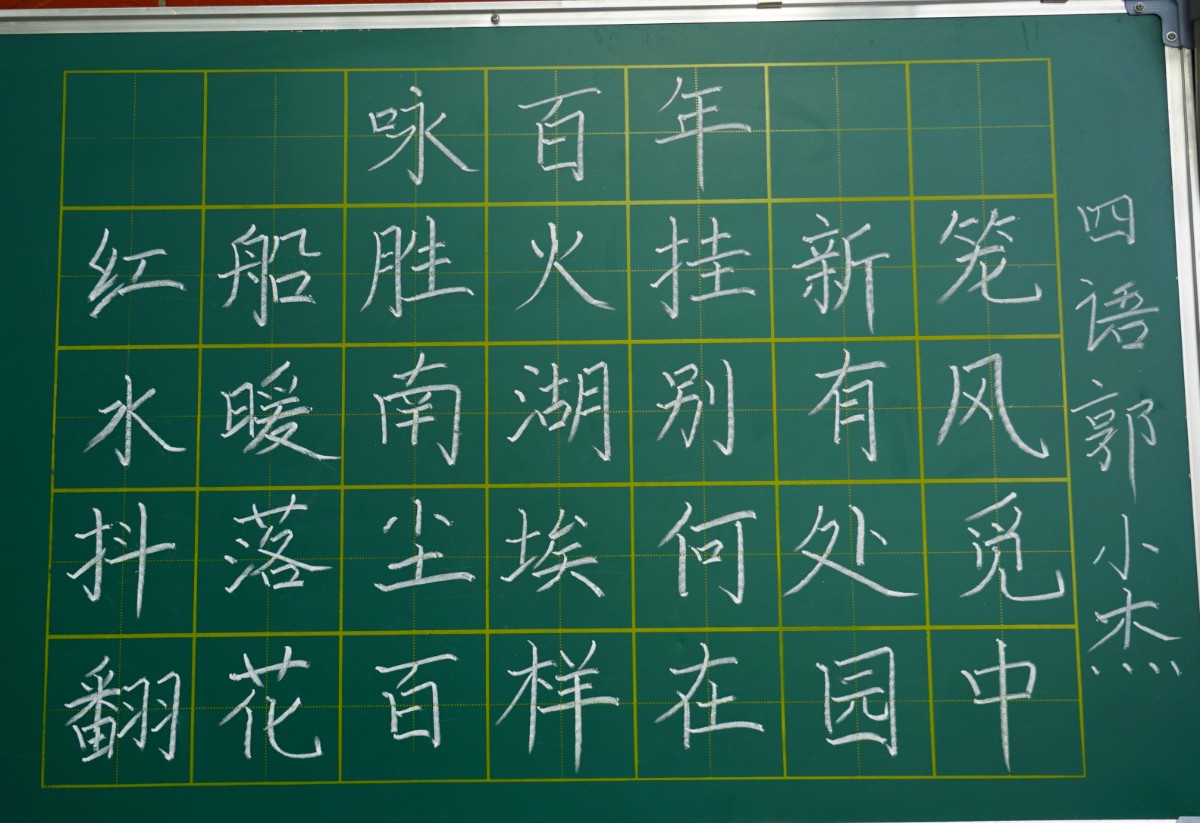 咏百年
红船胜火挂新笼
水暖南湖别有风
抖落尘埃何处觅
翻花百样在园中
四语郭小杰